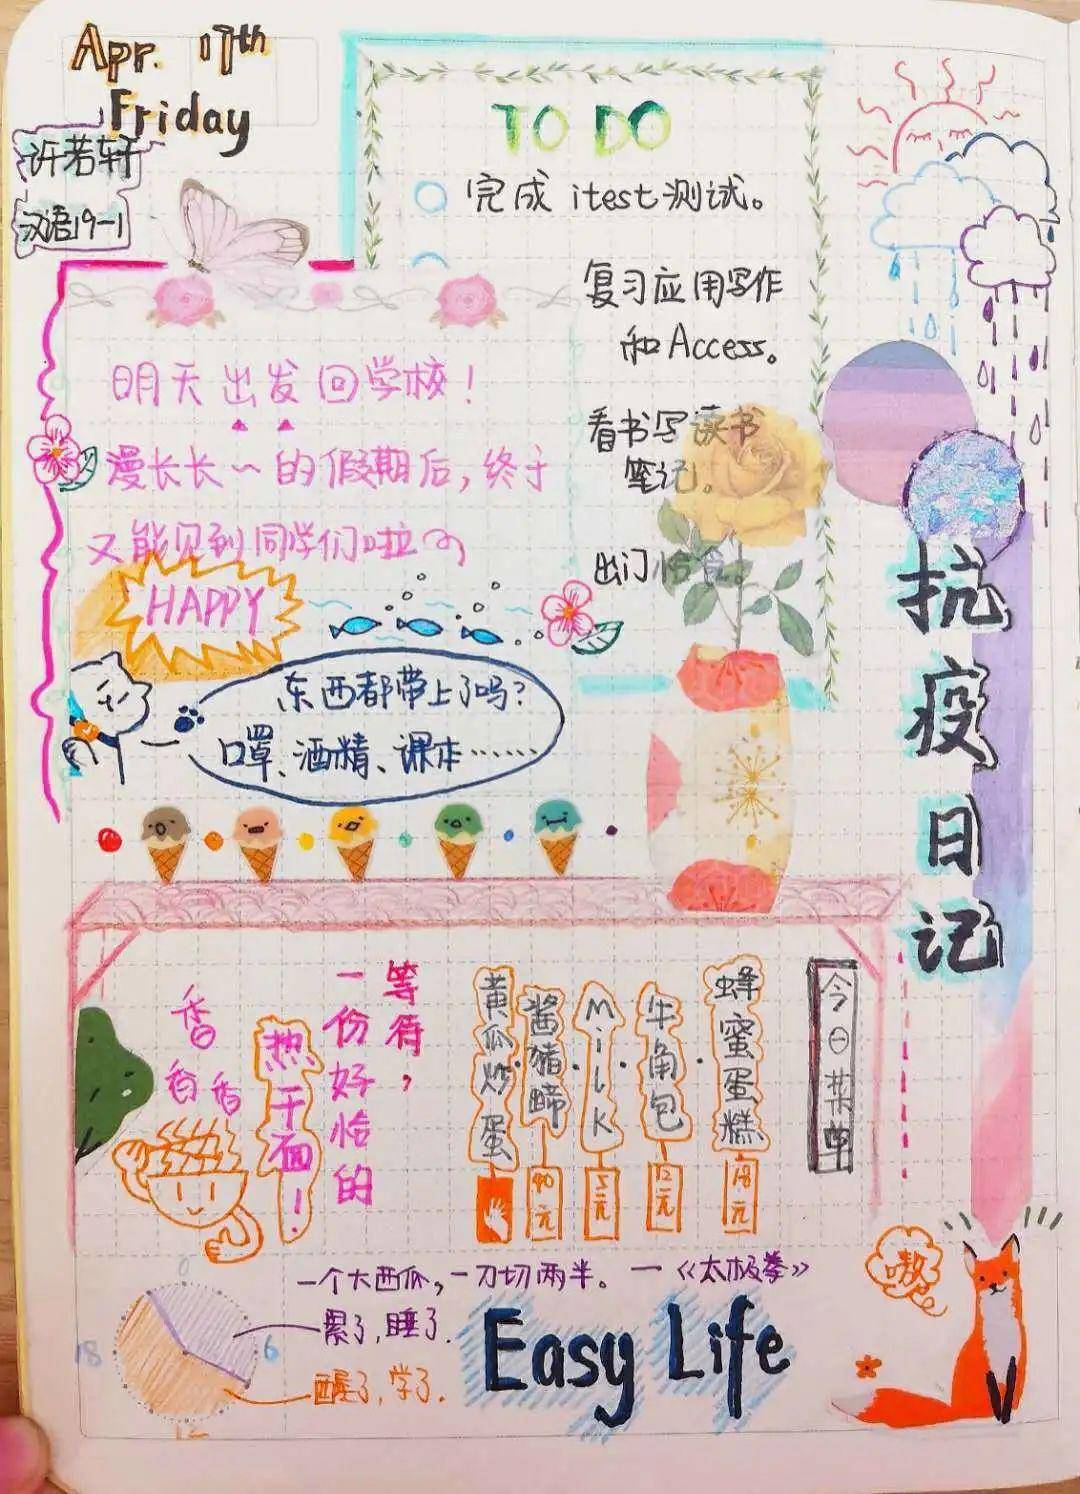 Apr. 17th
Friday
许若轩
汉语19-1
TO DO
完成 itest测试。
复习应用写作
和Access。
看书写读书
笔记。
出门恰食。
明天出发回学校！
漫长长~的假期后，终于
又能见到同学们啦
HAPPY
东西都带上了吗？
口罩、酒精、课本……
抗疫日记
今日菜单
蜂蜜蛋糕
18元
牛角包
12元
Milk
5元
酱猪蹄
40元
黄瓜炒蛋
等待，
一份好恰的
热干面！
香
香香
一个大西瓜，一刀切两半。—《太极拳》
累了，睡了.
醒了，学了.
0
6
12
18
Easy Life
嗷